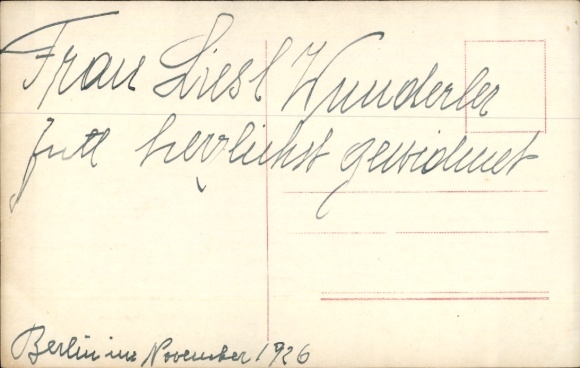 Frau Liesl Wunderler
herzlichst gewidmet
Berlin im November 1926